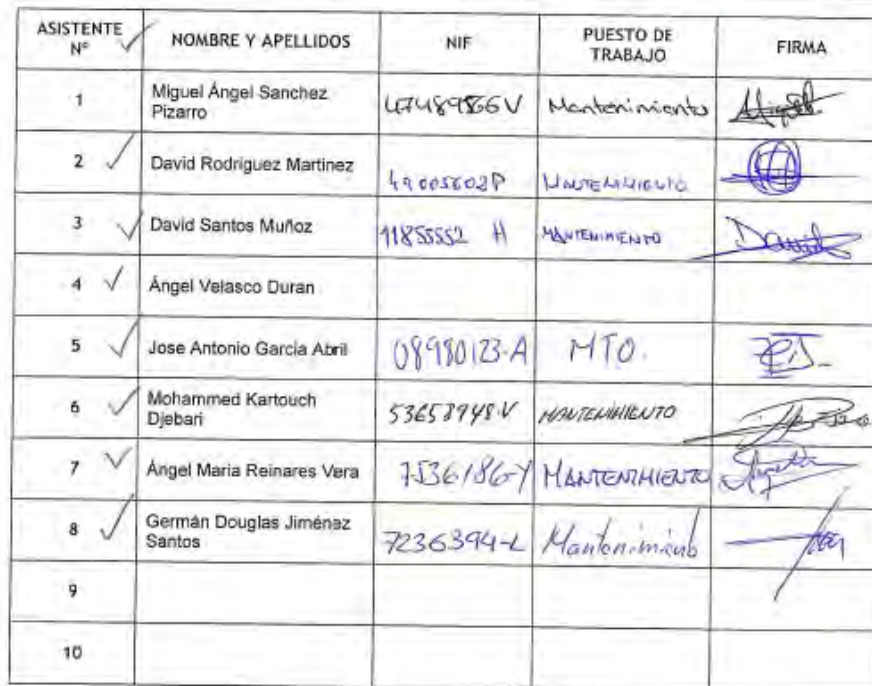 ASISTENTE Nº
NOMBRE Y APELLIDOS
NIF
PUESTO DE TRABAJO
FIRMA
1
Miguel Ángel Sanchez
Pizarro
Mantenimiento
Miguel
2
David Rodriguez Martinez
49005602P
MANTENIMIENTO
3
David Santos Muñoz
11855552 H
MANTENIMIENTO
David
4
Ángel Velasco Duran
5
Jose Antonio García Abril
08980123-A
MTO.
6
Mohammed Kartouch
Djebari
53658948V
MANTENIMIENTO
7
Ángel Maria Reinares Vera
7536186-Y
MANTENIMIENTO
8
Germán Douglas Jiménez
Santos
7236394-L
Mantenimiento
9
10